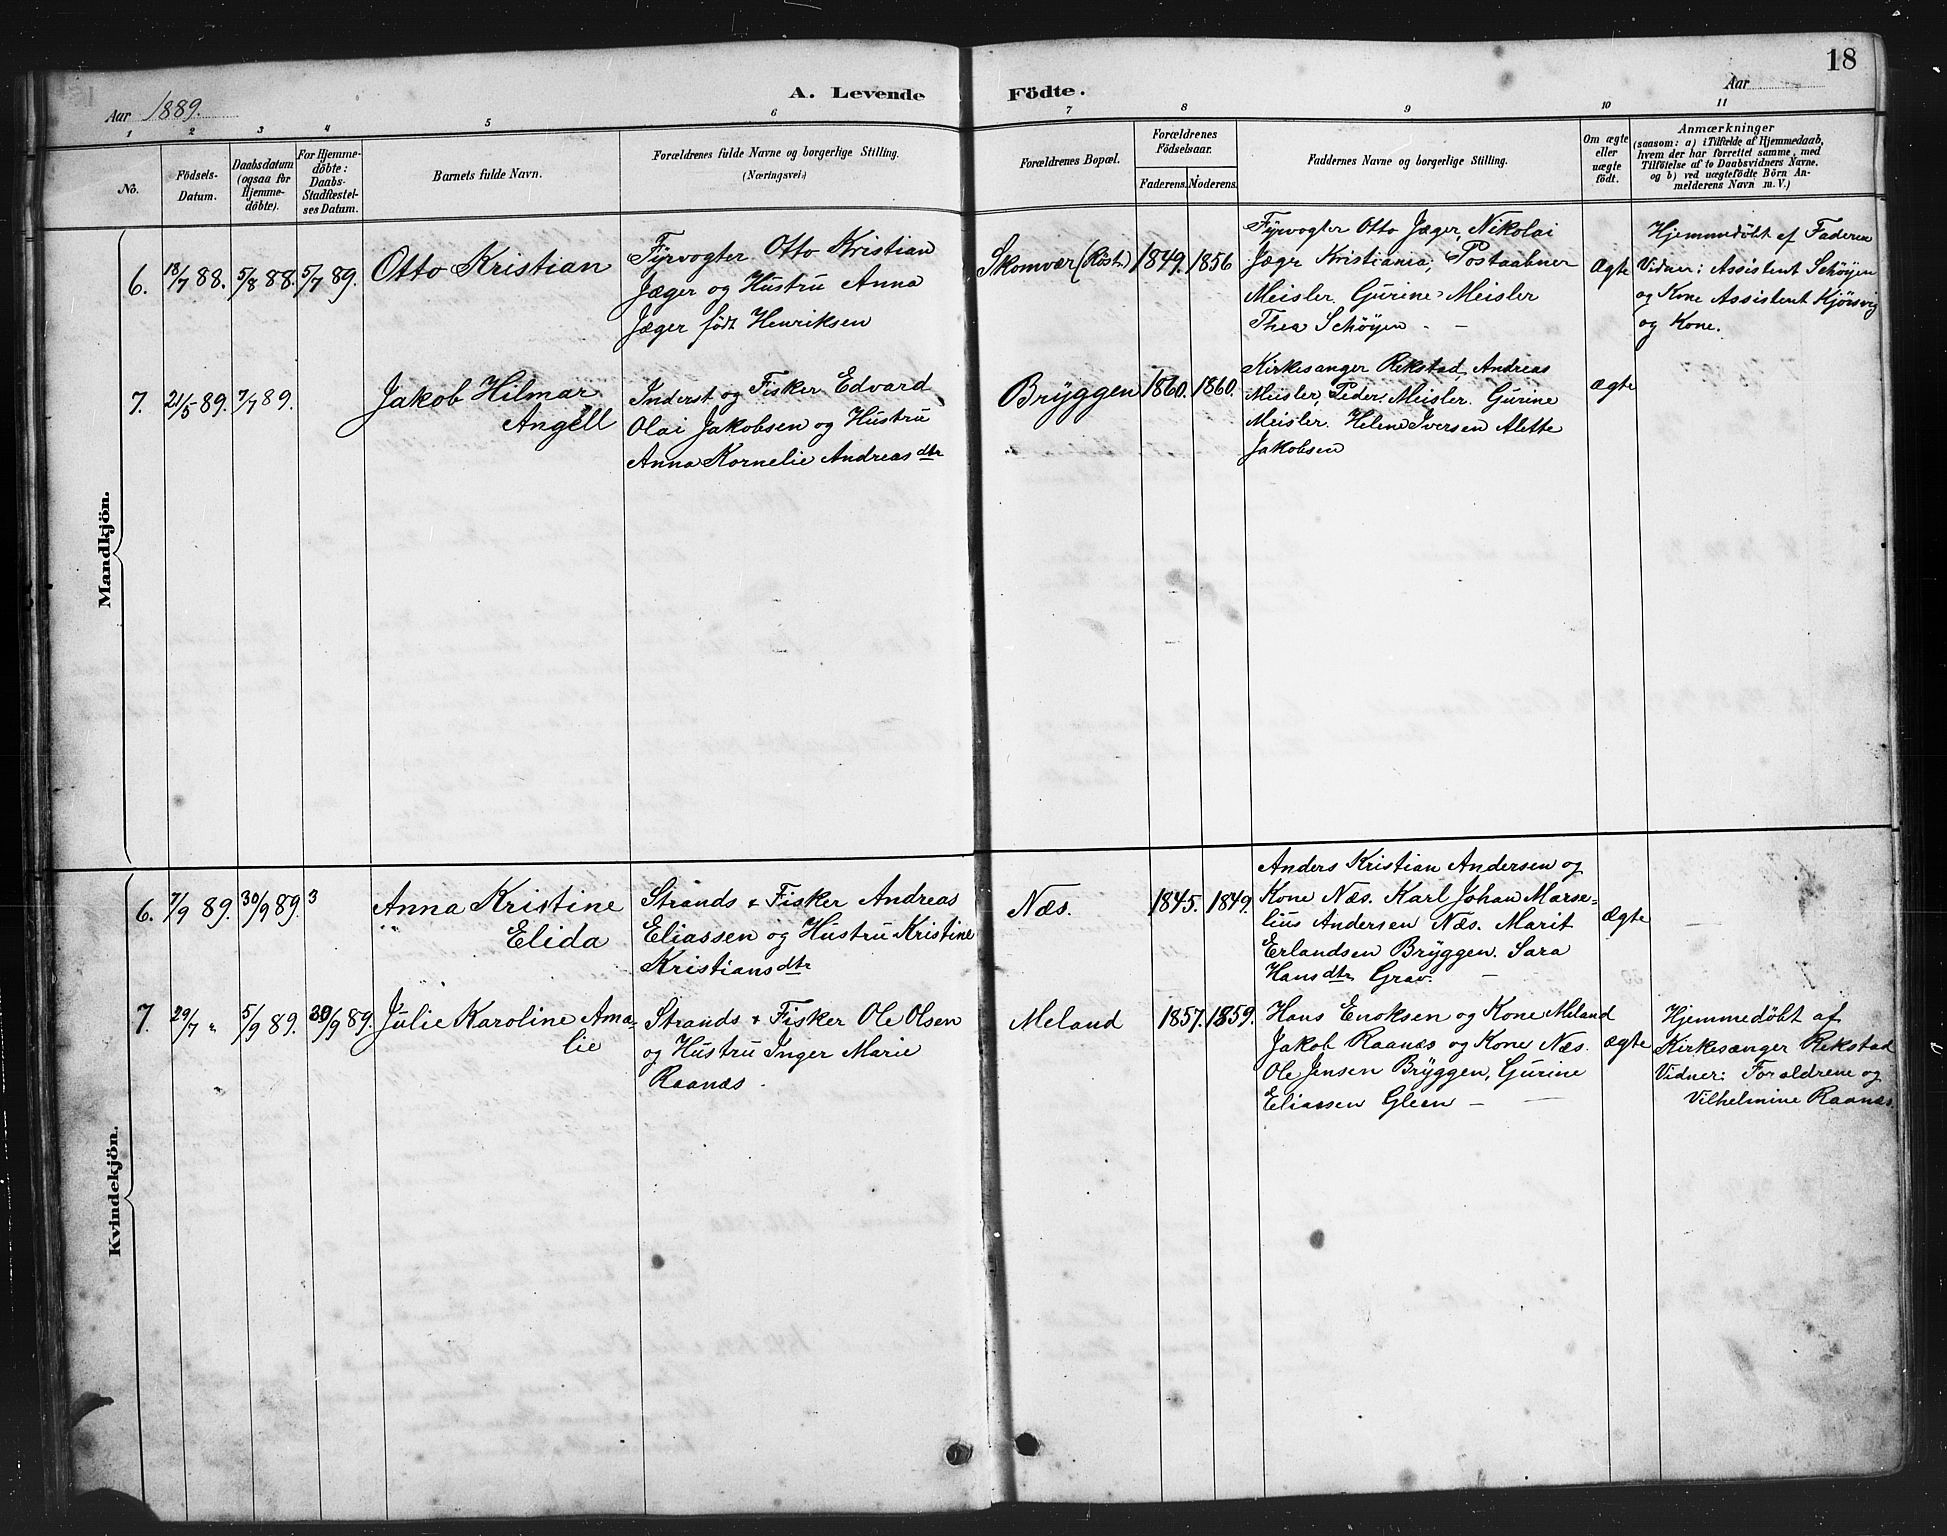 18
Aar 1889.
A. Levende Födte.
Aar
1 2 3 4 5 6 7 8 9 10 11
No.
Födsels-
Datum.
Daabsdatum
(ogsaa for
Hjemme-
döbte).
For Hjemme-
döbte:
Daabs-
Stadfæstel-
ses Datum.
Barnets fulde Navn.
Forældrenes fulde Navne og borgerlige Stilling.
(Næringsvei.)
Forældrenes Bopæl.
Forældrenes
Födselsaar.
Faderens. Moderens.
Faddernes Navne og borgerlige Stilling.
Om ægte
eller
uægte
födt.
Anmærkninger
(saasom: a) i Tilfælde af Hjemmedaab,
hvem der har forrettet samme, med
Tilföielse af to Daabsvidners Navne.
og b) ved uægtefödte Börn An-
melderens Navn m.V.)
Mandkjön.
6. 18/7 88. 5/8 88. 5/7 89.
Otto Kristian
Fyrvogter Otto Kristian
Jæger og Hustru Anna
Jæger født Henriksen
Skomvær (Röst) 1849. 1856
Fyrvogter Otto Jæger, Nikolai
Jægr Kristiania, Postaabner
Meisler. Gurine Meisler
Thea Schøyen - -
Ægte
Hjemmedøbt af Faderen
Vidner: Assistent Schøyen
og Kone Assistent Kjörsvig
og Kone.
7. 21/5 89. 7/7 89.
Jakob Hilmar
Angell
Inderst og Fisker Edvard
Olai Jakobsen og Hustru
Anna Kornelie Andreasdtr
Bryggen 1860. 1860.
Kirkesanger Rekstad, Andreas
Meisler, Peder Meisler. Gurine
Meisler. Helene Iversen Alette
Jakobsen
ægte
Kvindekjön.
6. 7/9 89. 30/9 89. 3
Anna Kristine
Elida
Strands & Fisker Andreas
Eliassen og Hustru Kristine
Kristiansdtr
Næs. 1845. 1849.
Anders Kristian Andersen og
Kone Næs. Karl Johan Marse=
lius Andersen Næs. Marit
Erlandsen Bryggen. Sara
Hansdtr Grav. -
Ægte
7. 29/7 " 5/9 89. 30/9 89.
Julie Karoline Ama-
lie
Strands & Fisker Ole Olsen
og Hustru Inger Marie
Raanæs.
Meland 1857. 1859.
Hans Enoksen og Kone Meland
Jakob Raanæs og Kone Næs.
Ole Jensen Bryggen, Gurine
Eliassen Gleen -
ægte
Hjemmedøbt af
Kirkesænger Rekstad
Vidner: Foraldrene og
Vilhelmine Raanæs.